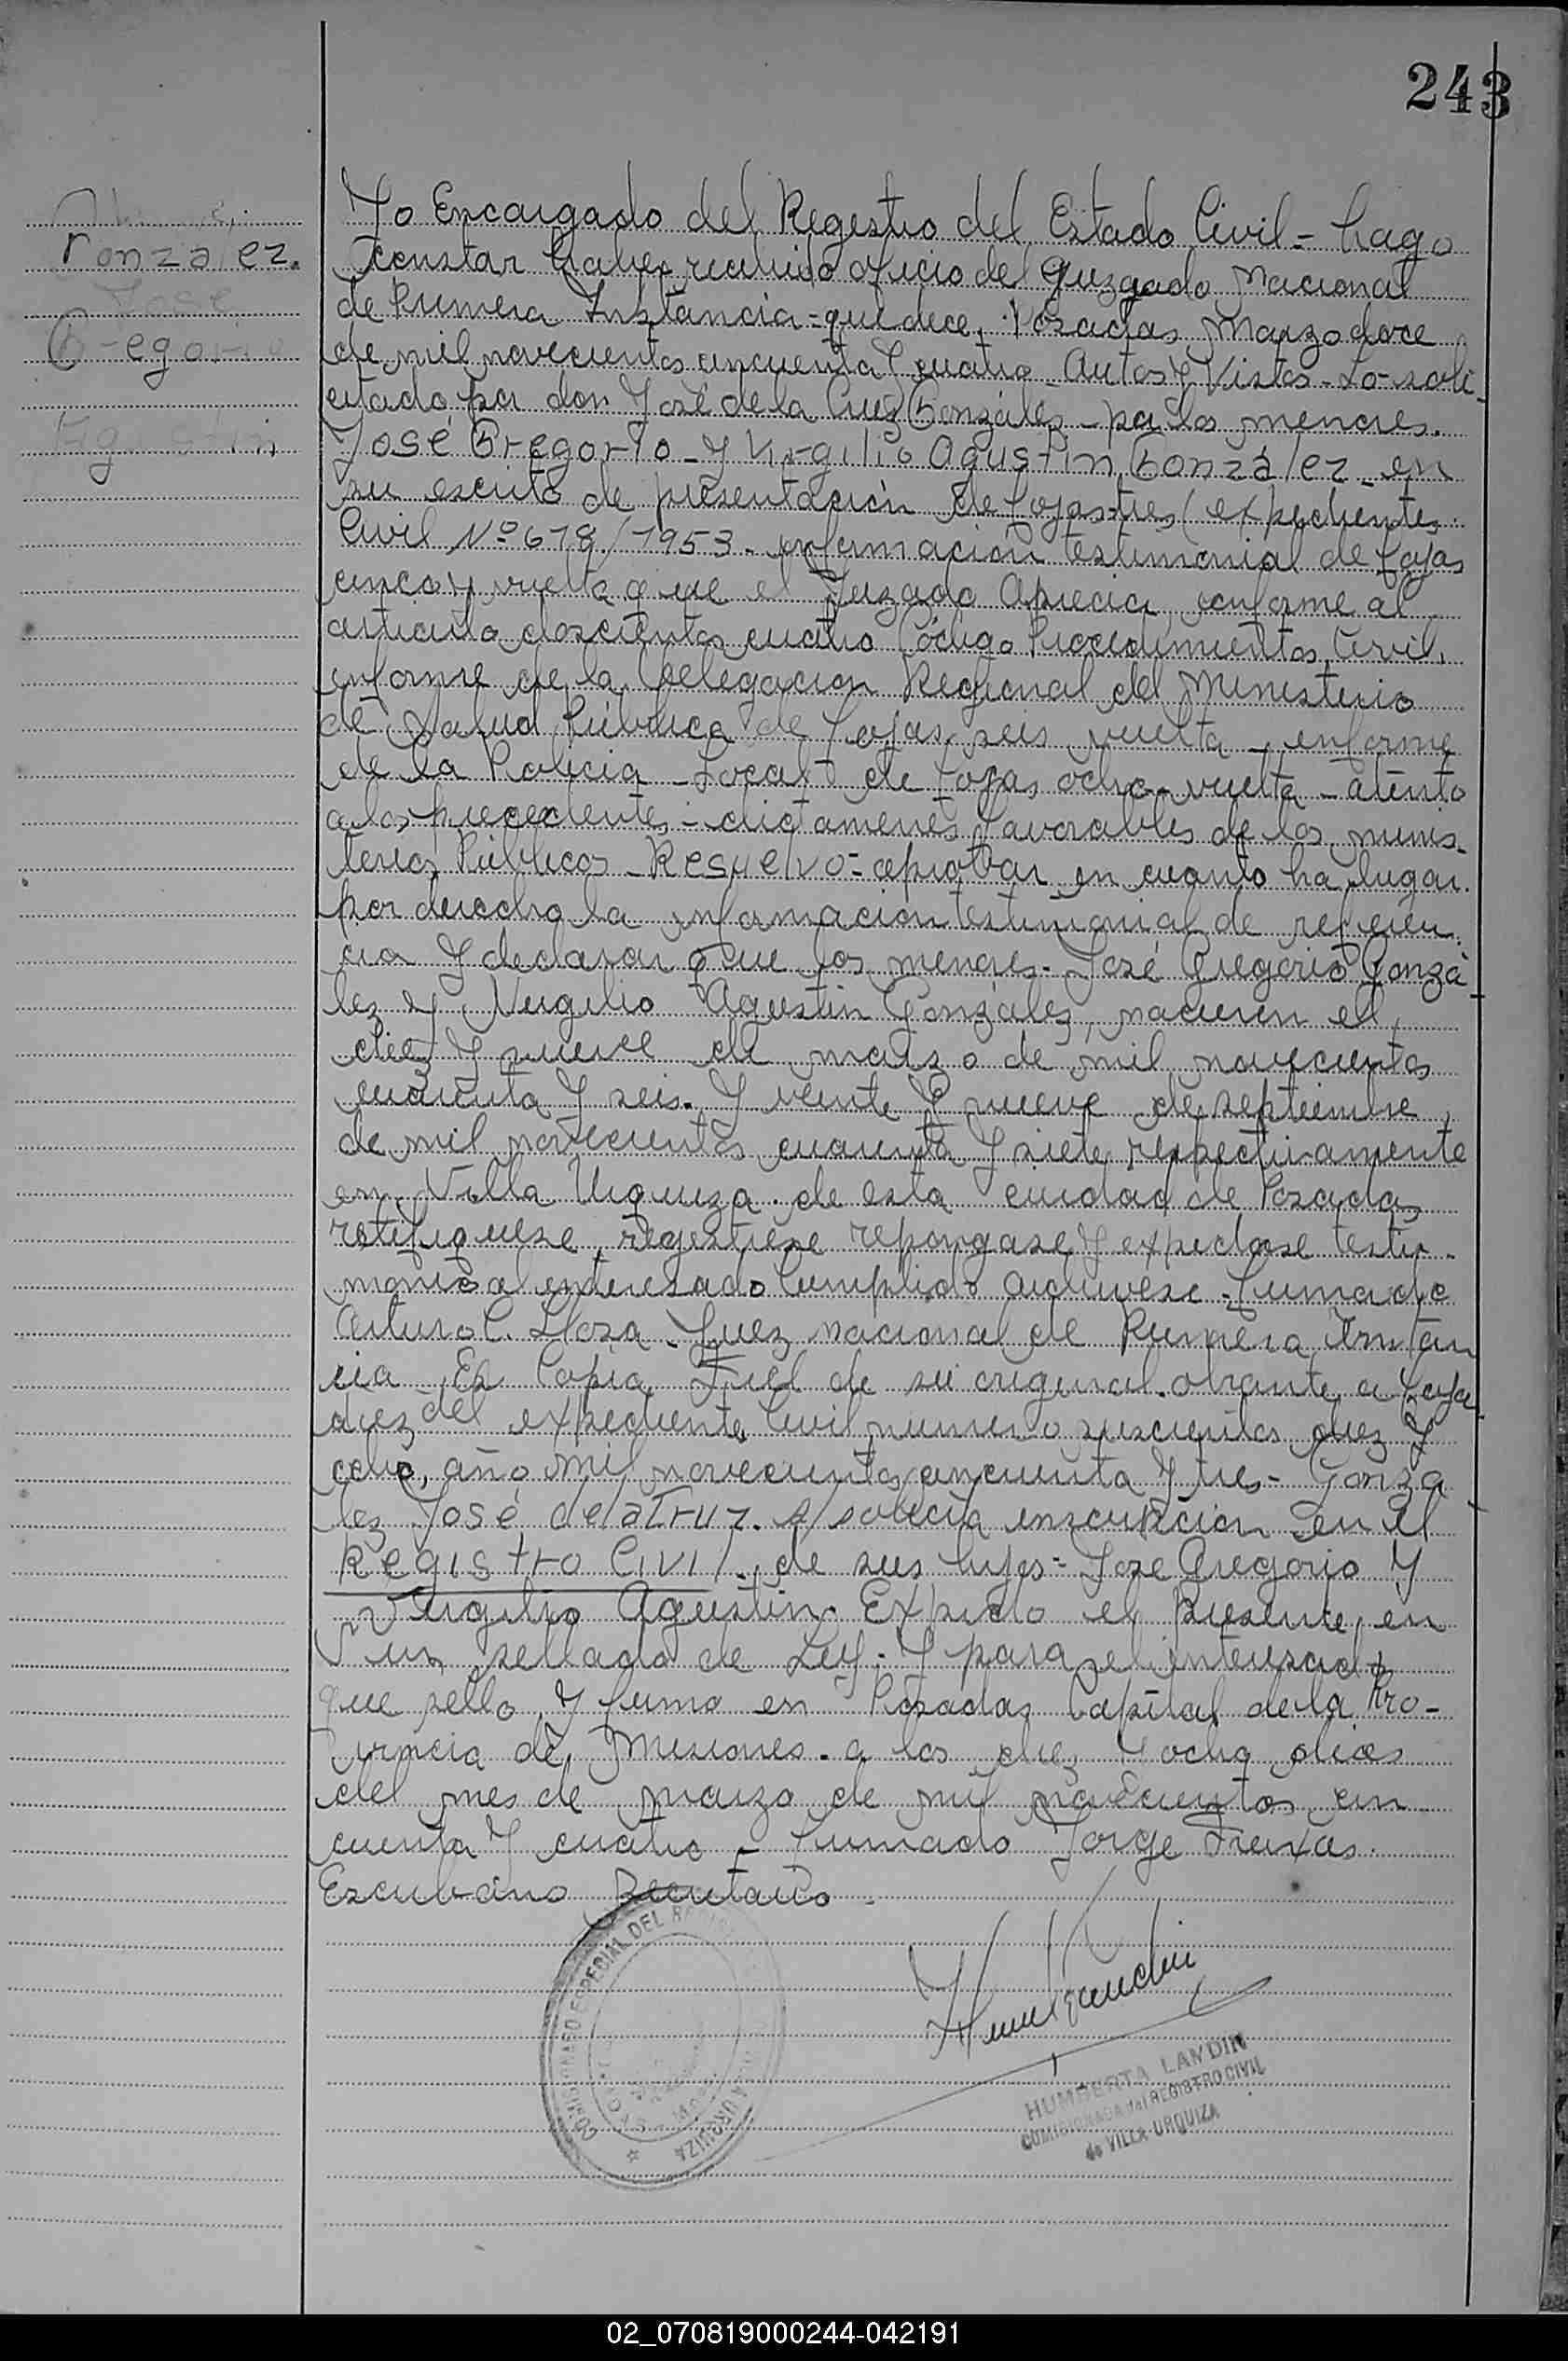 243
Gonzalez.
José
Gregorio
Agustin
Yo Encargado del Registro del Estado Civil - hago
constar haber recibido oficio del Juzgado Nacional
de Primera Instancia - que dice, Posadas Marzo doce
de mil novecientos cincuenta y cuatro - Autos y Vistos - Lo soli-
citado por don José de la Cruz González - pa los menores.
José Gregorio - y Virgilio Agustin González - en
su escrito de presentación de fojas tres (expediente
Civil Nº 618/1953 - información testimonial de fojas
cinco y vuelta que el Juzgado Aprecia conforme al
articulo doscientos cuatro Código Procedimientos Civil,
informe de la Delegación Regional del Ministerio
de Salud Pública de fojas seis vuelta - informe
de la Policia - Local - de fojas ocho vuelta - atento
a los precedentes - dictamenes favorables de los minis-
terios Públicos - Resuelvo - aprobar en cuanto ha lugar
por derecho la información testimonial de referen
cia y declarar que los menores - José Gregorio Gonzá-
lez y Virgilio Agustin Gonzáles, nacieron el
diez y nueve de marzo de mil novecientos
cuarenta y seis. y veinte y nueve de septiembre
de mil novecientos cuarenta y siete respectivamente
en Villa Urquiza. de esta ciudad de Posadas
rotifiquese, registrese repongase y expidase testi-
monio al interesado Cumplido archivese - firmado
Arturo C. Llosa - Juez nacional de Primera Instan
cia - Es Copia Fiel de su original. obrante a foja
diez del expediente Civil numero seiscientos diez y
ocho, año mil novecientos cincuenta y tres - Gonza
lez José de la Cruz. s/ solicita inscripción en el
Registro Civil - de sus hijos - Jose Gregorio y
Virgilio Agustin. Expido el presente en
un sellado de Ley. y para el interesado
que sello y firmo en Posadas Capital de la Pro-
vincia de Misiones. a los diez y ocho dias
del mes de marzo de mil novecientos cin
cuenta y cuatro - firmado Jorge Freixas.
Escribano Secretario -
COMISIONADO ESPECIAL DEL
URQUIZA
HUMBERTA LANDIN
COMISIONADA del REGISTRO CIVIL
de VILLA URQUIZA
02_070819000244-042191